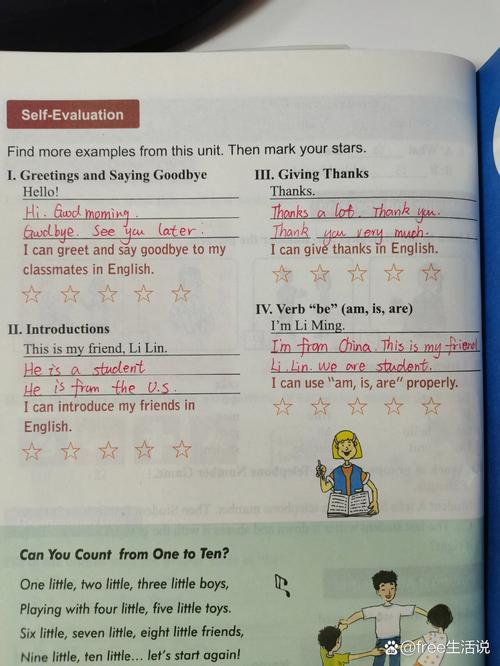 Self-Evaluation
Find more examples from this unit. Then mark your stars.
I. Greetings and Saying Goodbye
Hello!
Hi. Good morning.
Goodbye. See you later.
I can greet and say goodbye to my
classmates in English.
II. Introductions
This is my friend, Li Lin.
He is a student
He is from the U.S.
I can introduce my friends in
English.
III. Giving Thanks
Thanks.
Thanks a lot. Thank you.
Thank you very much.
I can give thanks in English.
IV. Verb “be” (am, is, are)
I'm Li Ming.
I'm from China. This is my friend
Li Lin. We are student.
I can use “am, is, are” properly.
Can You Count from One to Ten?
One little, two little, three little boys,
Playing with four little, five little toys.
Six little, seven little, eight little friends,
Nine little, ten little... let's start again!
@free生活说